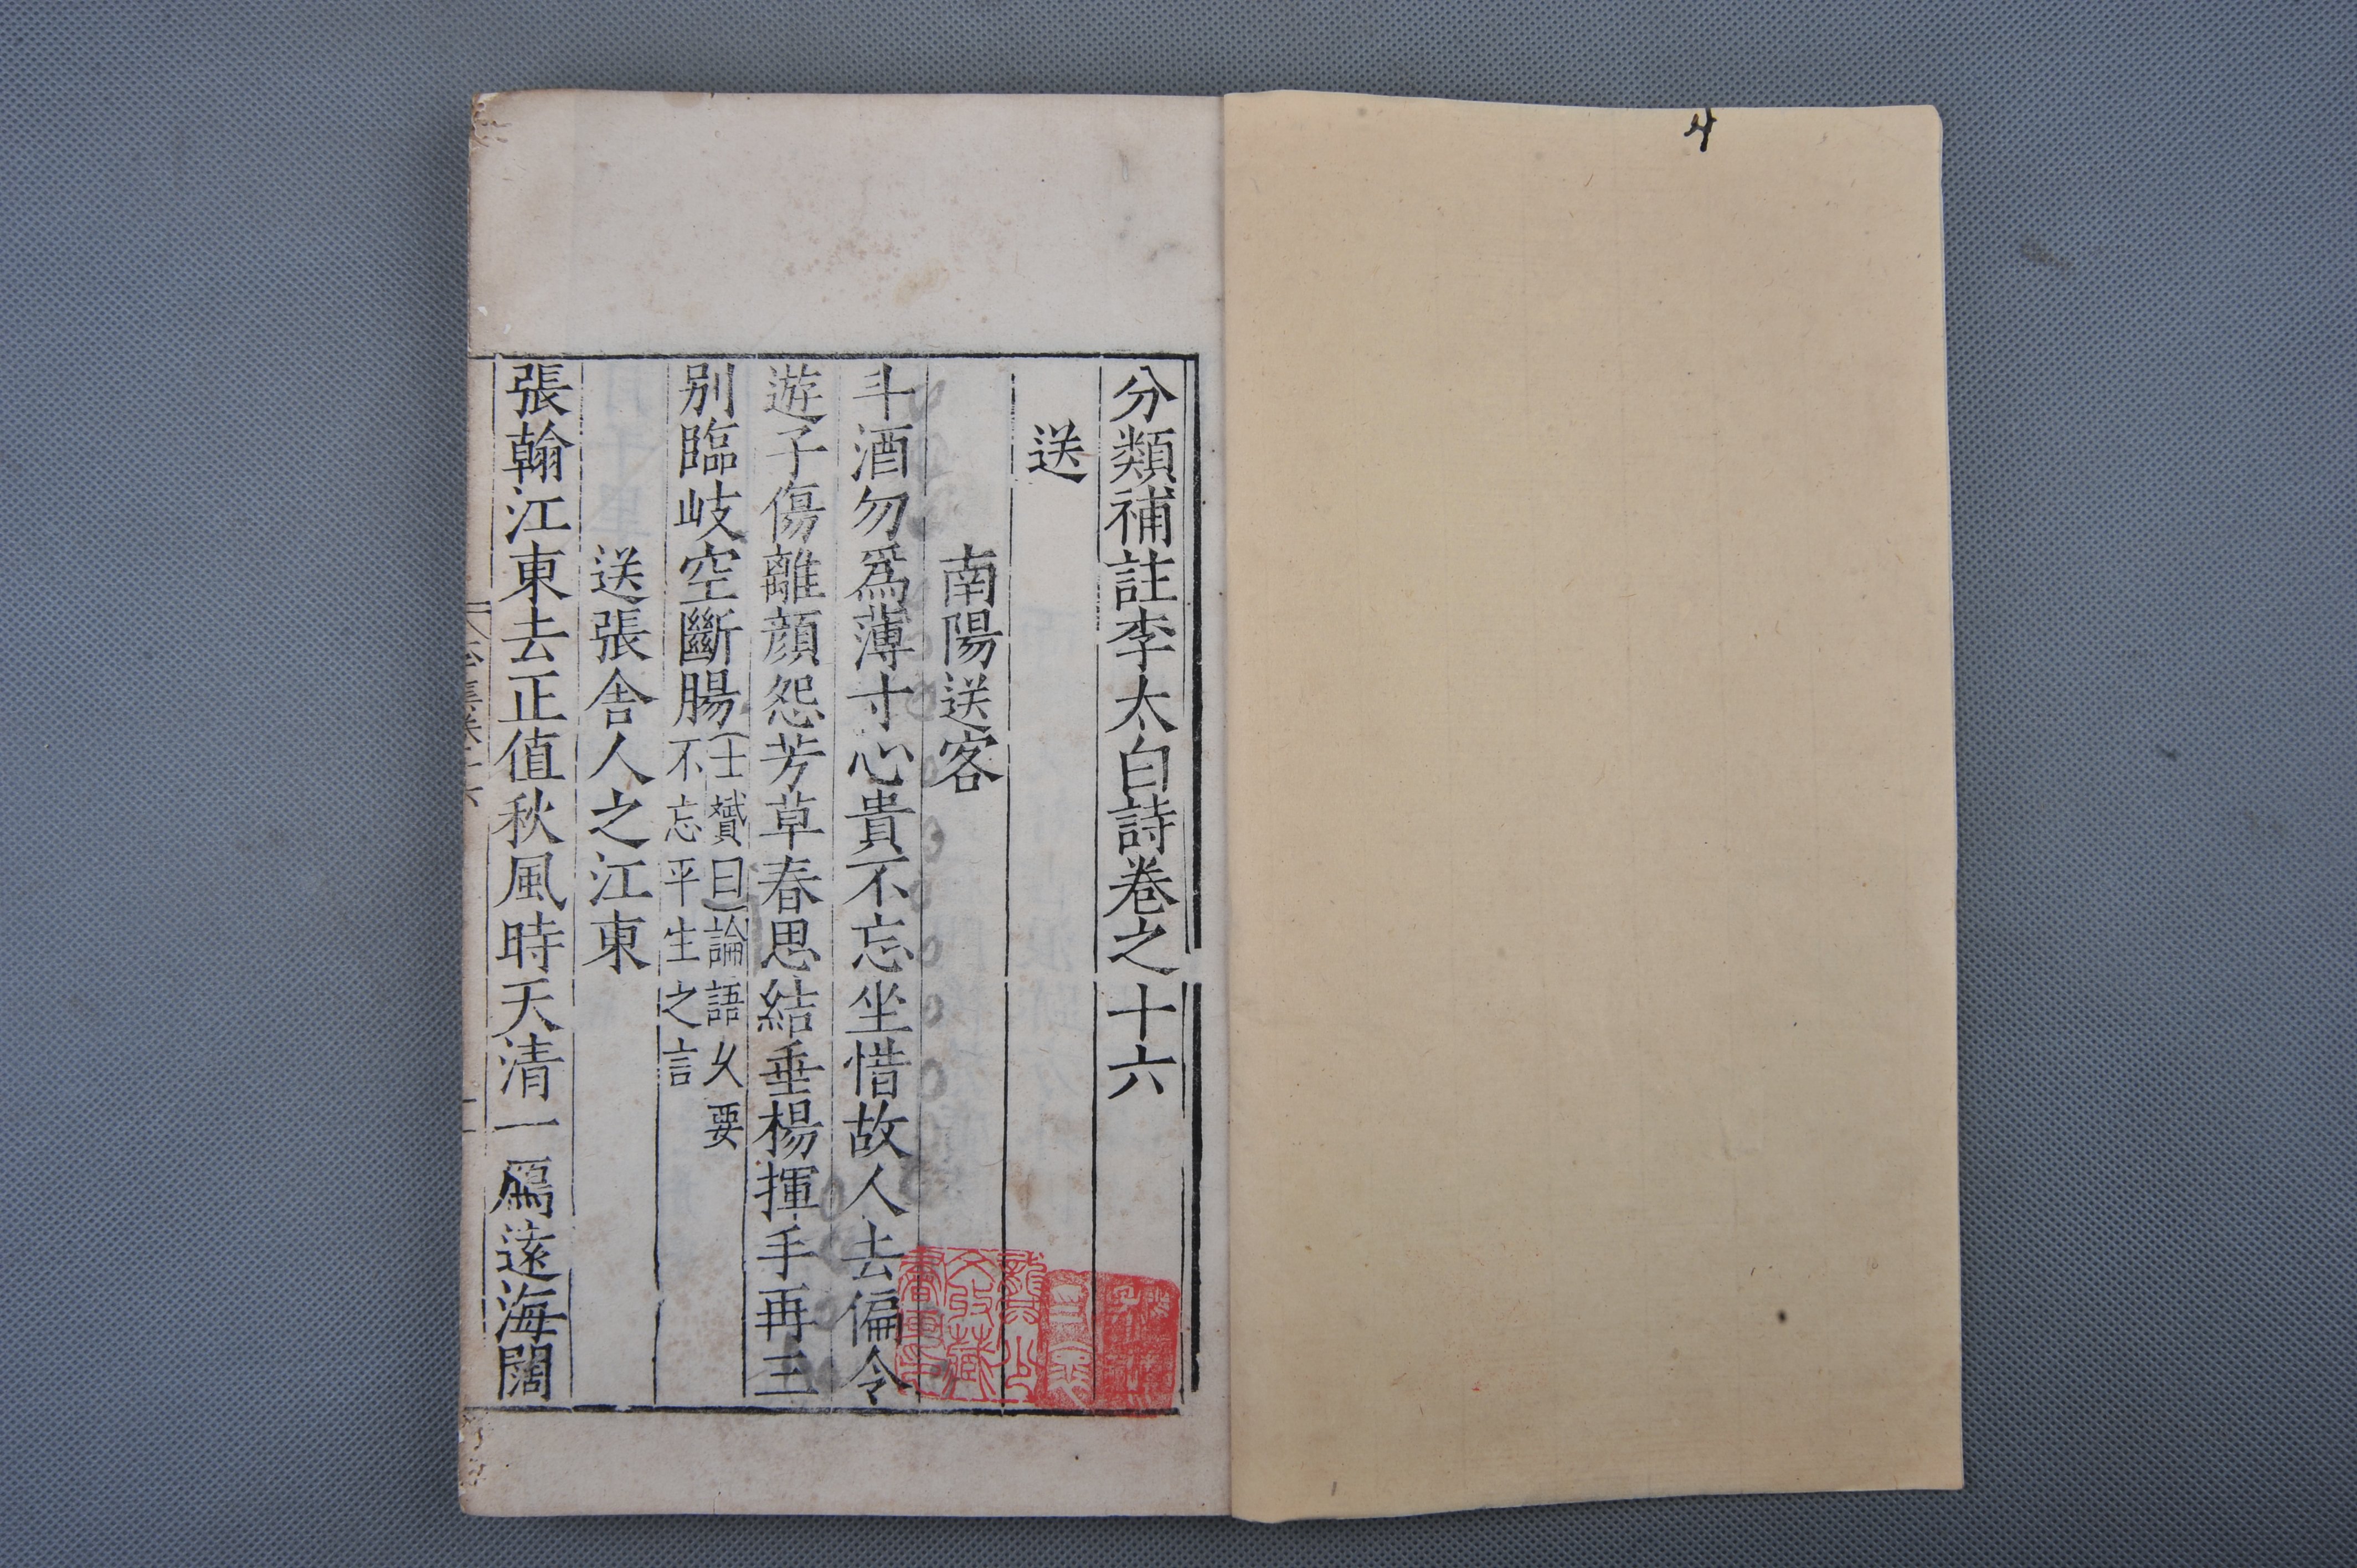 分類補註李太白詩卷之十六
送
南陽送客
斗酒勿爲薄寸心貴不忘坐惜故人去偏令
遊子傷離顔怨芳草春思結垂楊揮手再三
别臨岐空斷腸士贇曰論語久要
不忘平生之言
送張舍人之江東
張翰江東去正值秋風時天清一鴈遠海闊